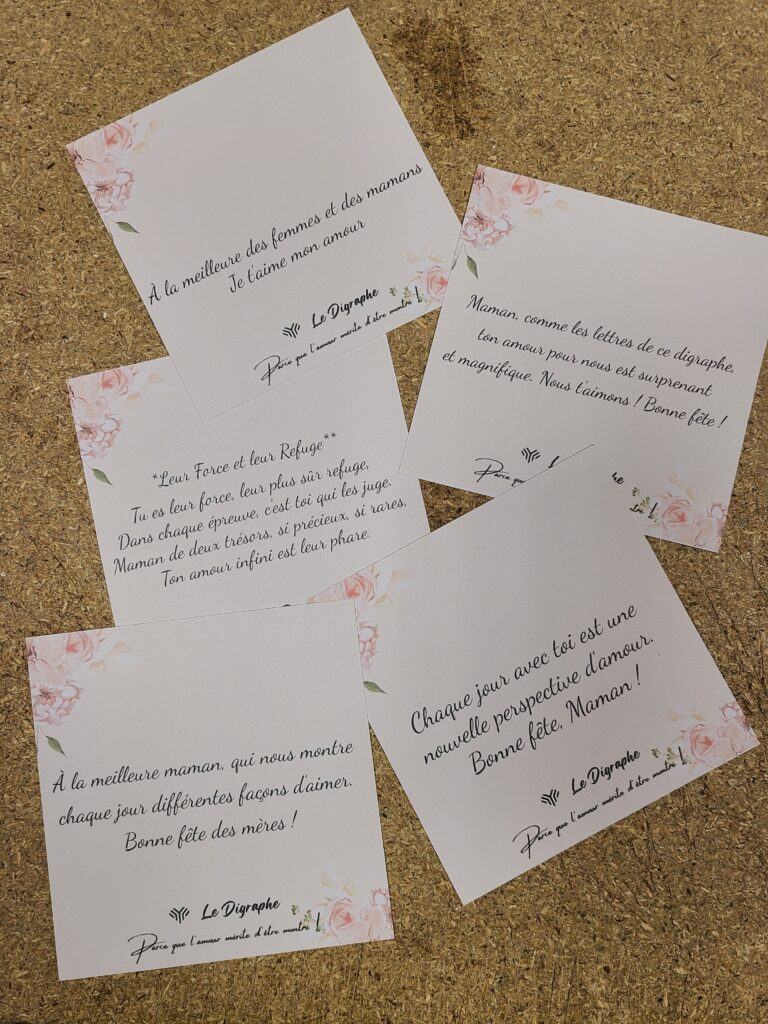 À la meilleure des femmes et des mamans
Je t'aime mon amour
Le Digraphe
Parce que l'amour mérite d'être montré !
Maman, comme les lettres de ce digraphe,
ton amour pour nous est surprenant
et magnifique. Nous t'aimons ! Bonne fête !
Parce que
*Leur Force et leur Refuge**
Tu es leur force, leur plus sûr refuge,
Dans chaque épreuve, c'est toi qui les juge.
Maman de deux trésors, si précieux, si rares,
Ton amour infini est leur phare.
Chaque jour avec toi est une
nouvelle perspective d'amour.
Bonne fête, Maman !
Le Digraphe
Parce que l'amour mérite d'être montré !
À la meilleure maman, qui nous montre
chaque jour différentes façons d'aimer.
Bonne fête des mères !
Le Digraphe
Parce que l'amour mérite d'être montré !